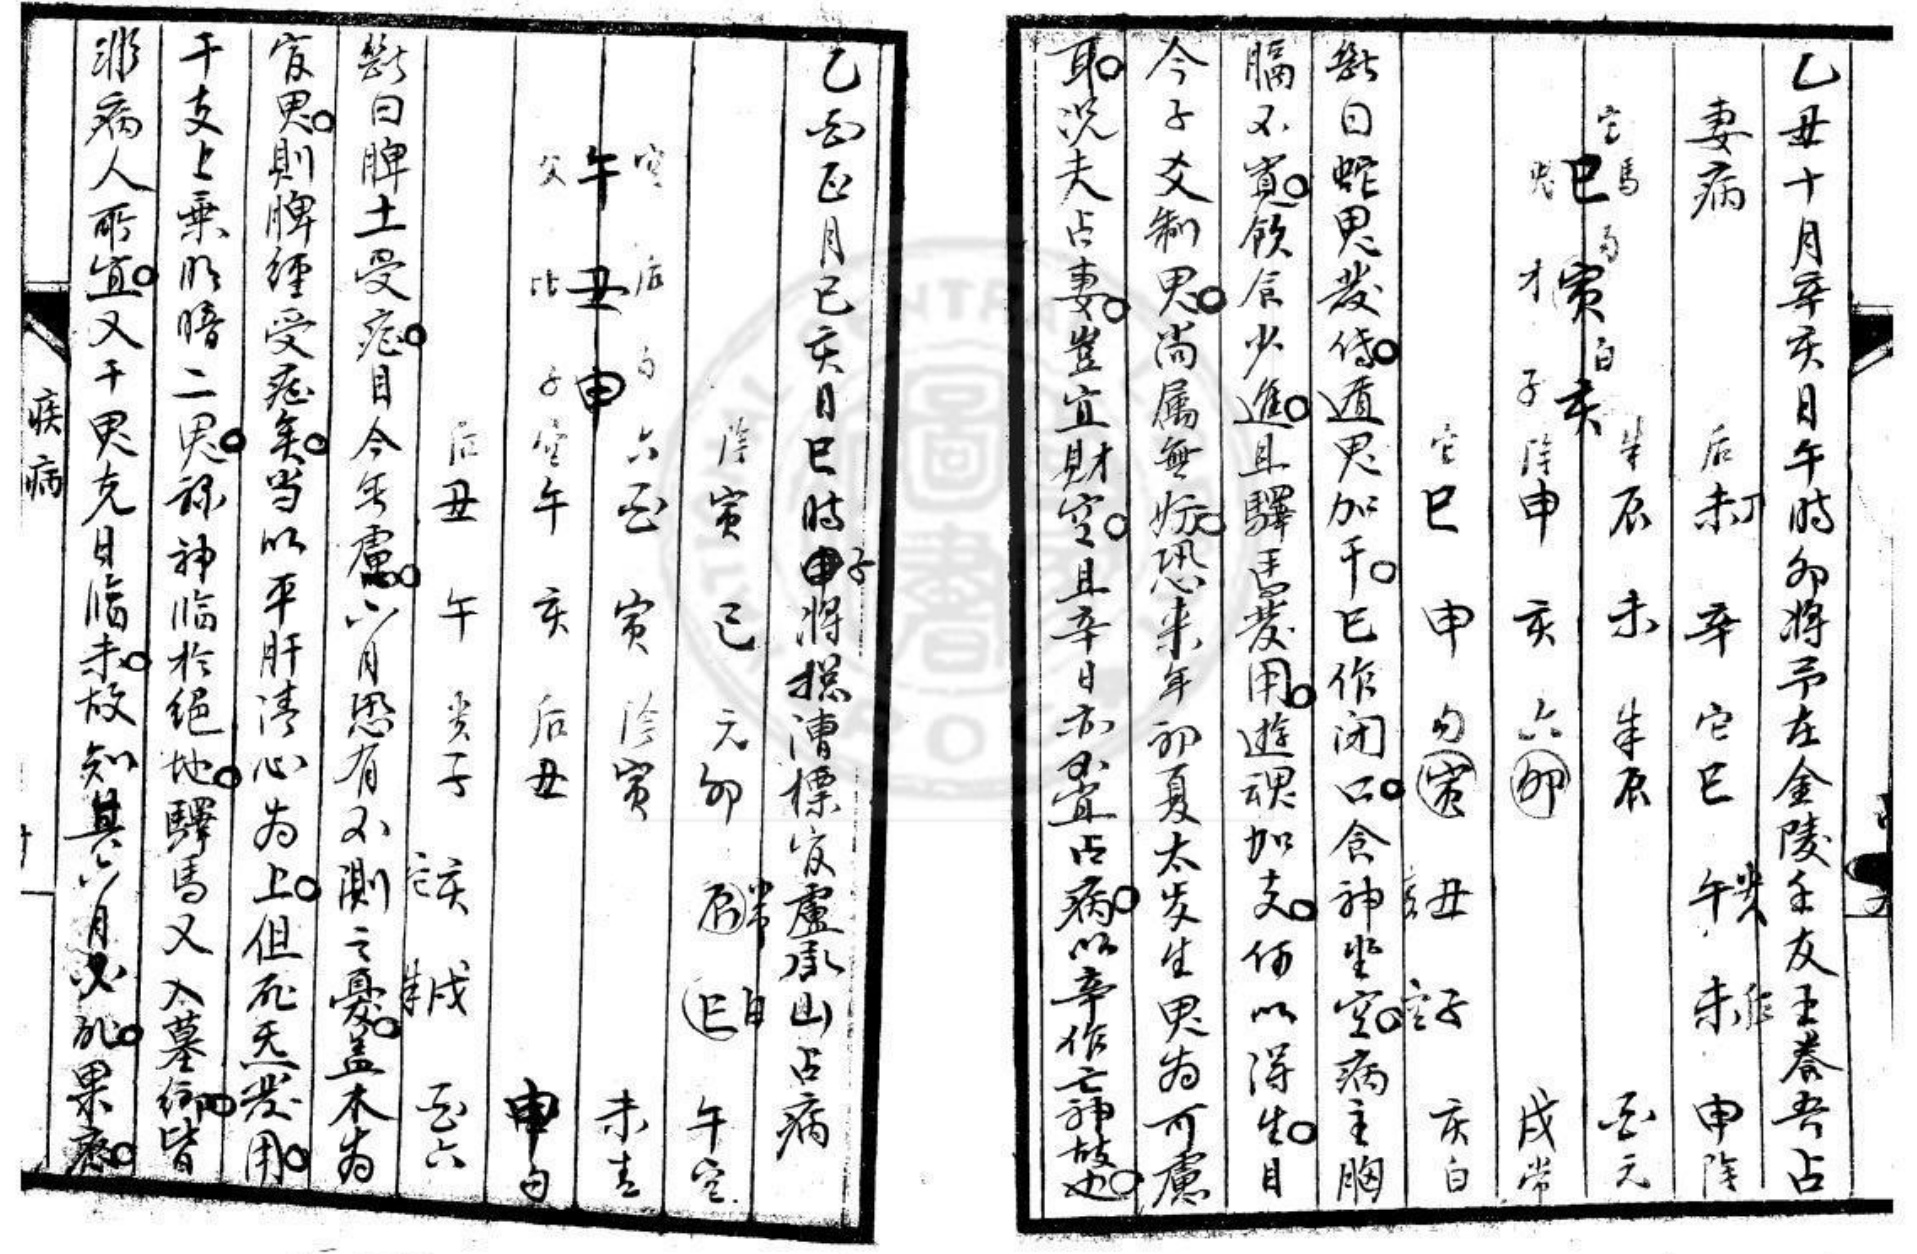 乙丑十月辛亥日午時卯將予在金陵壬友王養吾占
妻病
空 馬
鬼 巳
勾
才 寅
白
子 亥
后 未丁 辛 空 巳 午 貴 未 后 申 陰
朱 辰 未 朱 辰 酉 元
陰 申 亥 六 卯 戌 常
空 巳 申 勾 寅 丑 子 亥 白
斷曰蛇鬼發傳遁鬼加干巳作閉口食神坐空病主胸
膈不寬飲食少進且驛馬發用遊魂加支何以得生目
今子爻制鬼尚属無妨恐来年初夏太炎生鬼為可慮
耳况夫占妻豈宜財空且辛日亦不宜占病以辛作亡神故也
乙酉正月己亥日巳時申子將摠漕標官盧承山占病
父 午 空
比 丑 后
子 申 勾
陰 寅 己 元 卯 辰 常 巳 白 午 空
六 酉 寅 陰 寅 未 青
空 午 亥 后 丑 申 勾
后 丑 午 貴 子 亥 戌 朱 酉 六
斷曰脾土受尅目今無慮六月恐有不測之憂盖木為
官鬼則脾經受尅矣当以平肝清心為上但死炁發用
干支上乗明暗二鬼祿神臨於絕地驛馬又入墓鄉皆
非病人所宜又干鬼克日臨未故知其六月必死果應
疾病